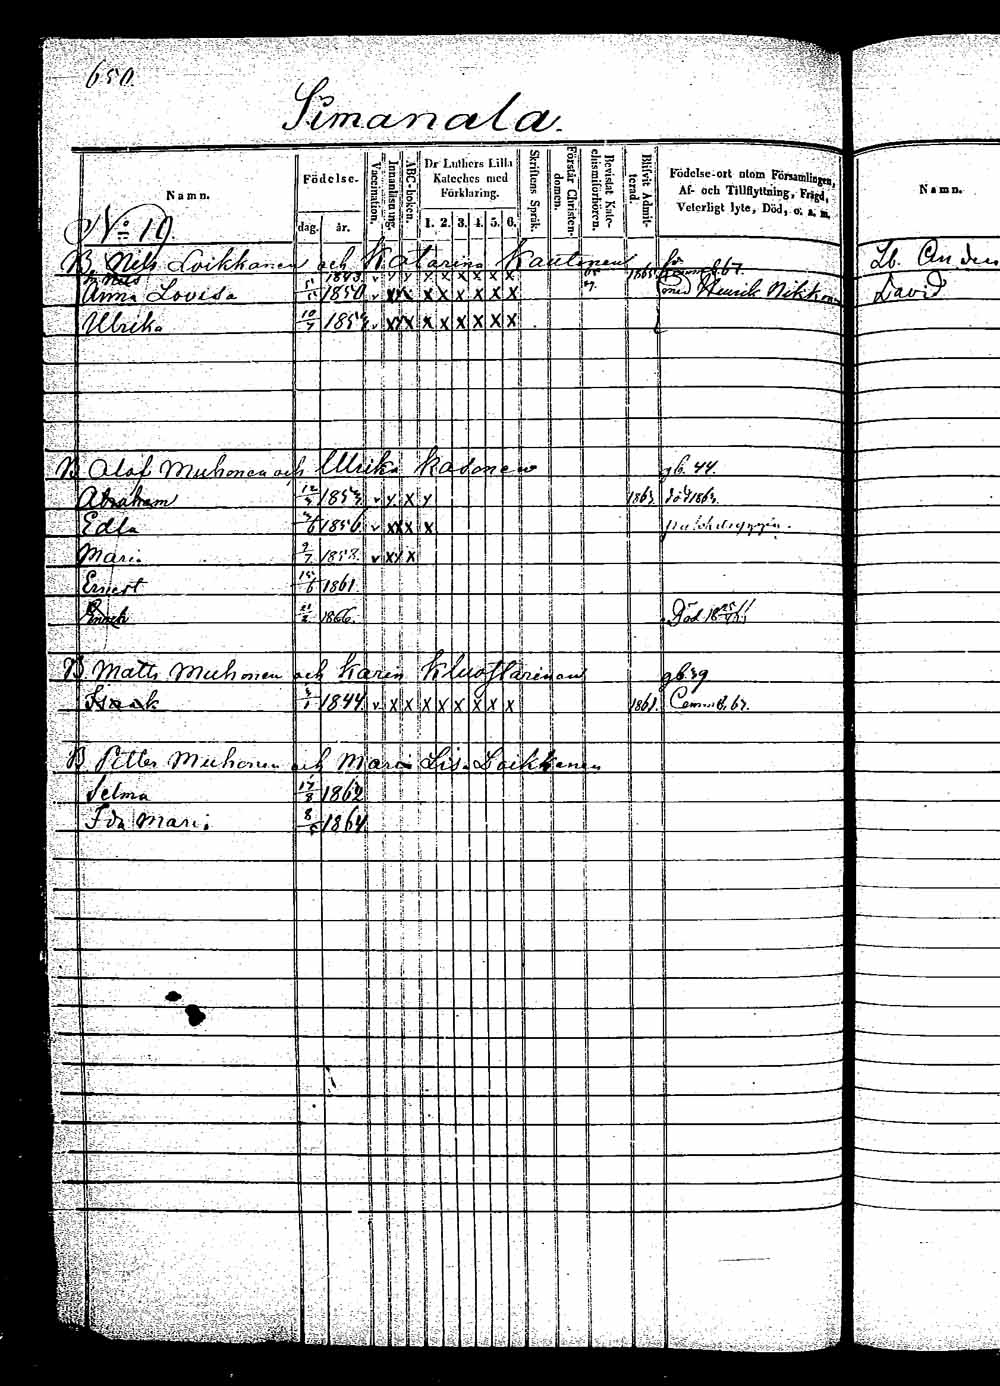 650.
Simanala.
Namn.
Födelse-
dag. år.
Vaccination.
Innanläsning.
ABC-boken.
Dr Luthers Lilla Kateches med Förklaring.
1. 2. 3. 4. 5. 6.
Skriftens Språk.
Förstår Christendomen.
Bevistat Katechismiförhören.
Blifvit Admitterad.
Födelse-ort utom Församlingen,
Af- och Tillflyttning, Frägd,
Veterligt lyte, Död, o. s. m.
Namn.
No 19.
B. Nils Loikkanen och Katarina Kautonen
Nils 1843. v y y x x x x x x 1865
Anna Lovisa 5/5 1850 v x x x x x x x x med Henrik Nikkonen
Ulrika 10/7 185 v x x x x x x x x
B Olof Muhonen och Ulrika Kasonen gb. 44.
Abraham 12/3 1853. v y x y 1863 död 1863.
Edla 1856. v x x x
Maria 9/7 1858. v x y x
Ernest 15/6 1861.
21/2 1866. Död 18
B. Matts Muhonen och Karin gb 39
Isaak 1844 v x x x x x x x x 1861.
B Petter Muhonen och Maria Lisa Loikkanen
Selma 17/8 1862
Ida Maria 8/5 1864.
Lb. Anders
David